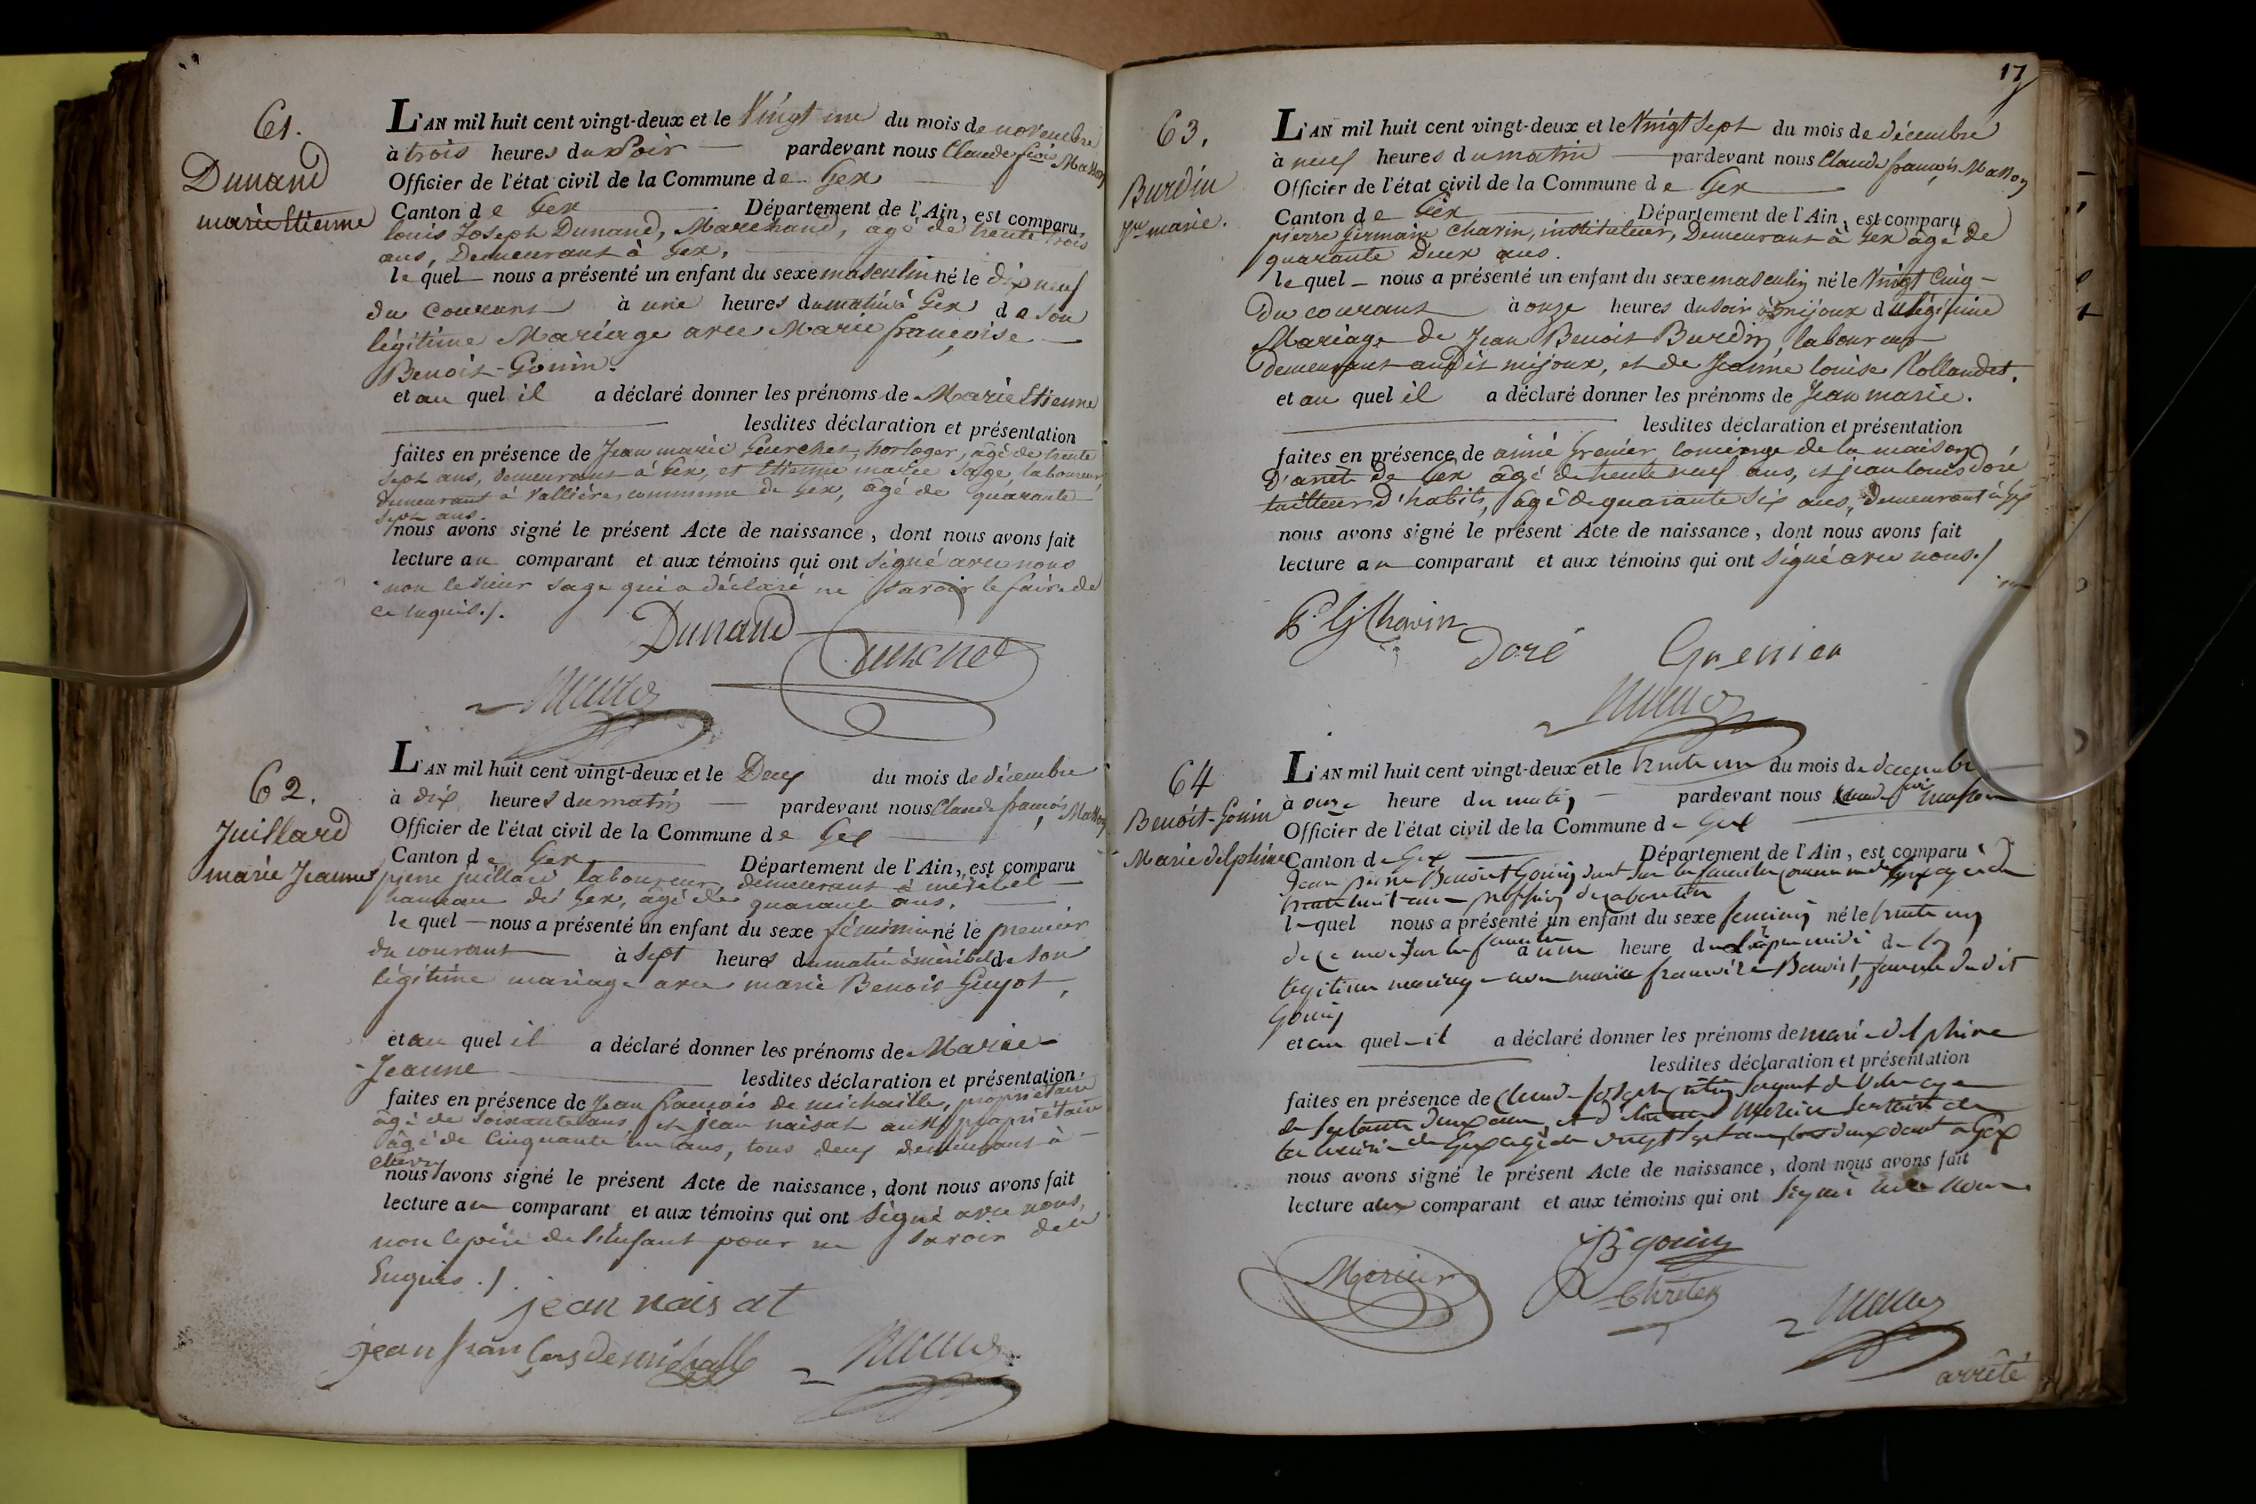 61.
Dunand
marie Etienne
L'AN mil huit cent vingt-deux et le Vingt un du mois de novembre
à trois heures du Soir pardevant nous Claude fçois Masson
Officier de l'état civil de la Commune de Gex
Canton de Gex Département de l'Ain, est comparu
louis Joseph Dunand, Marchand, âgé de trente trois
ans, Demeurant à Gex,
le quel nous a présenté un enfant du sexe masculin né le dix neuf
du courant à une heures du matin à Gex de son
légitime Mariage avec Marie françoise
Benoit-Gonin.
et au quel il a déclaré donner les prénoms de Marie Etienne
lesdites déclaration et présentation
faites en présence de Jean marie Guerchet, horloger, âgé de trente
sept ans, demeurant à Gex, et Etienne marie Sage, laboureur,
Demeurant à Vallière, commune de Gex, âgé de quarante
sept ans.
nous avons signé le présent Acte de naissance, dont nous avons fait
lecture au comparant et aux témoins qui ont signé avec nous
non le sieur Sage qui a déclaré ne Savoir le faire de
ce Enquis./.
Dunand
62.
Juillard
marie Jeanne
L'AN mil huit cent vingt-deux et le Deux du mois de décembre
à dix heures du matin pardevant nous Claude françois Masson
Officier de l'état civil de la Commune de Gex
Canton de Gex Département de l'Ain, est comparu
pierre juillard laboureur, demeurant à méribel
hameau de Gex, âgé de quarante ans.
le quel nous a présenté un enfant du sexe féminin né le premier
du courant à sept heures du matin à méribel de son
légitime mariage avec marie Benoit Guyot,
et au quel il a déclaré donner les prénoms de Marie
Jeanne lesdites déclaration et présentation
faites en présence de Jean françois de michaille, propriétaire
âgé de soixante ans, et jean naisat aussi propriétaire
âgé de Cinquante un ans, tous deux demeurant à
nous avons signé le présent Acte de naissance, dont nous avons fait
lecture au comparant et aux témoins qui ont signé avec nous,
non le père de l'Enfant pour ne Savoir de ce
Enquis ./.
jean nais at
17
63.
Burdin
Jn marie.
L'AN mil huit cent vingt-deux et le Vingt sept du mois de décembre
à neuf heures du matin pardevant nous Claude françois Masson
Officier de l'état civil de la Commune de Gex
Canton de Gex Département de l'Ain, est comparu
pierre germain Chavin, instituteur, Demeurant à Gex âgé de
quarante Deux ans.
le quel nous a présenté un enfant du sexe masculin né le Vingt Cinq
Du courant à onze heures du soir à mijoux du légitime
Mariage de Jean Benoit Burdin, laboureur
demeurant audit mijoux, et de Jeanne louise Rollandet.
et au quel il a déclaré donner les prénoms de Jean marie.
lesdites déclaration et présentation
faites en présence de aimé Grenier, concierge de la maison
D'arrêt de Gex âgé de trente neuf ans, et jean louis Doré
tailleur d'habits, âgé de quarante six ans, Demeurant à Gex
nous avons signé le présent Acte de naissance, dont nous avons fait
lecture au comparant et aux témoins qui ont signé avec nous./
P. G. Chavin
Doré
Grenier
64
Benoit-Gonin
Marie delphine
L'AN mil huit cent vingt-deux et le trente un du mois de décembre
à onze heure du matin pardevant nous Claude fçois masson
Officier de l'état civil de la Commune de Gex
Canton de Gex Département de l'Ain, est comparu
trente huit ans profession de laboureur
le quel nous a présenté un enfant du sexe féminin né le trente un
légitime mariage avec marie françoise Benoist, femme du dit
Gonin
et au quel il a déclaré donner les prénoms de marie delphine
lesdites déclaration et présentation
nous avons signé le présent Acte de naissance, dont nous avons fait
lecture aux comparant et aux témoins qui ont signé avec nous
Mercier
Gonin
Chrétien
arrêté